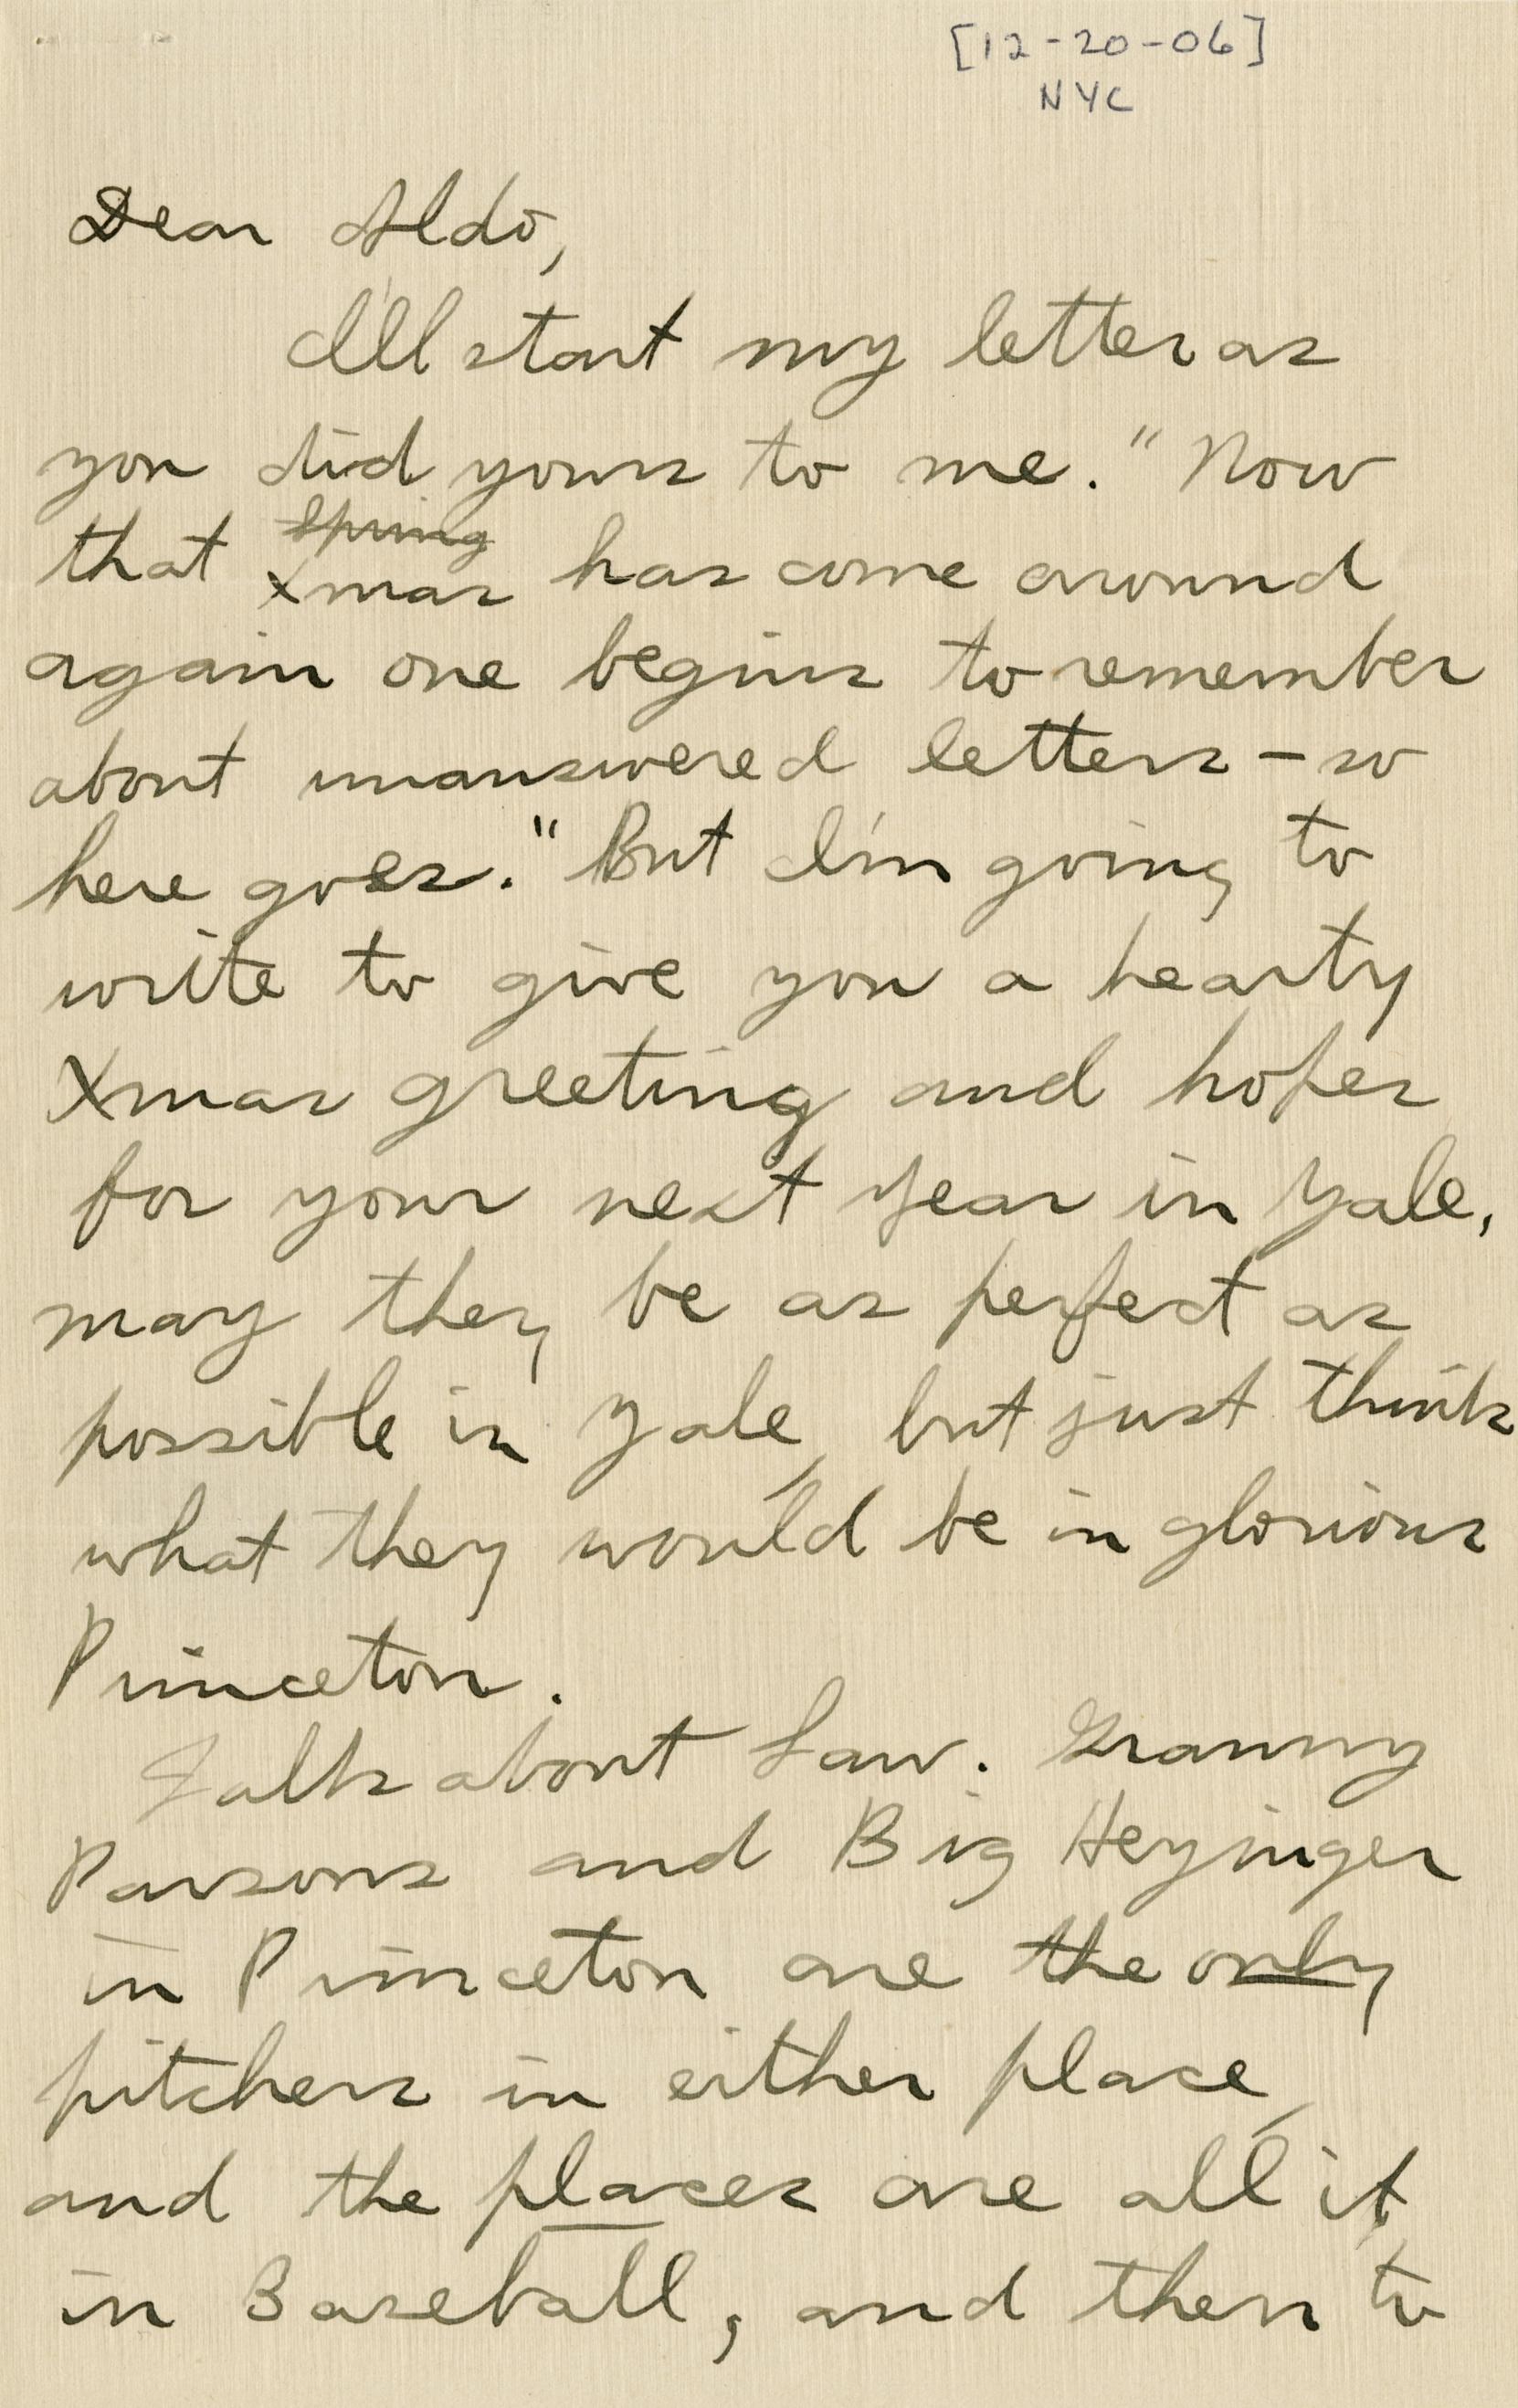 [12-20-06]
NYC
Dear Aldo,
I'll start my letter as
you did yours to me. "Now
Spring
that Xmas has come around
again one begins to remember
about unanswered letters - so
here goes." But I'm going to
write to give you a hearty
Xmas greeting and hopes
for your next year in Yale,
may they be as perfect as
possible in Yale, but just think
what they would be in glorious
Princeton.
Talk about Law. Granny
Parsons and Big Heyinger
in Princeton are the only
pitchers in either place,
and the places are all it
in Baseball, and then to